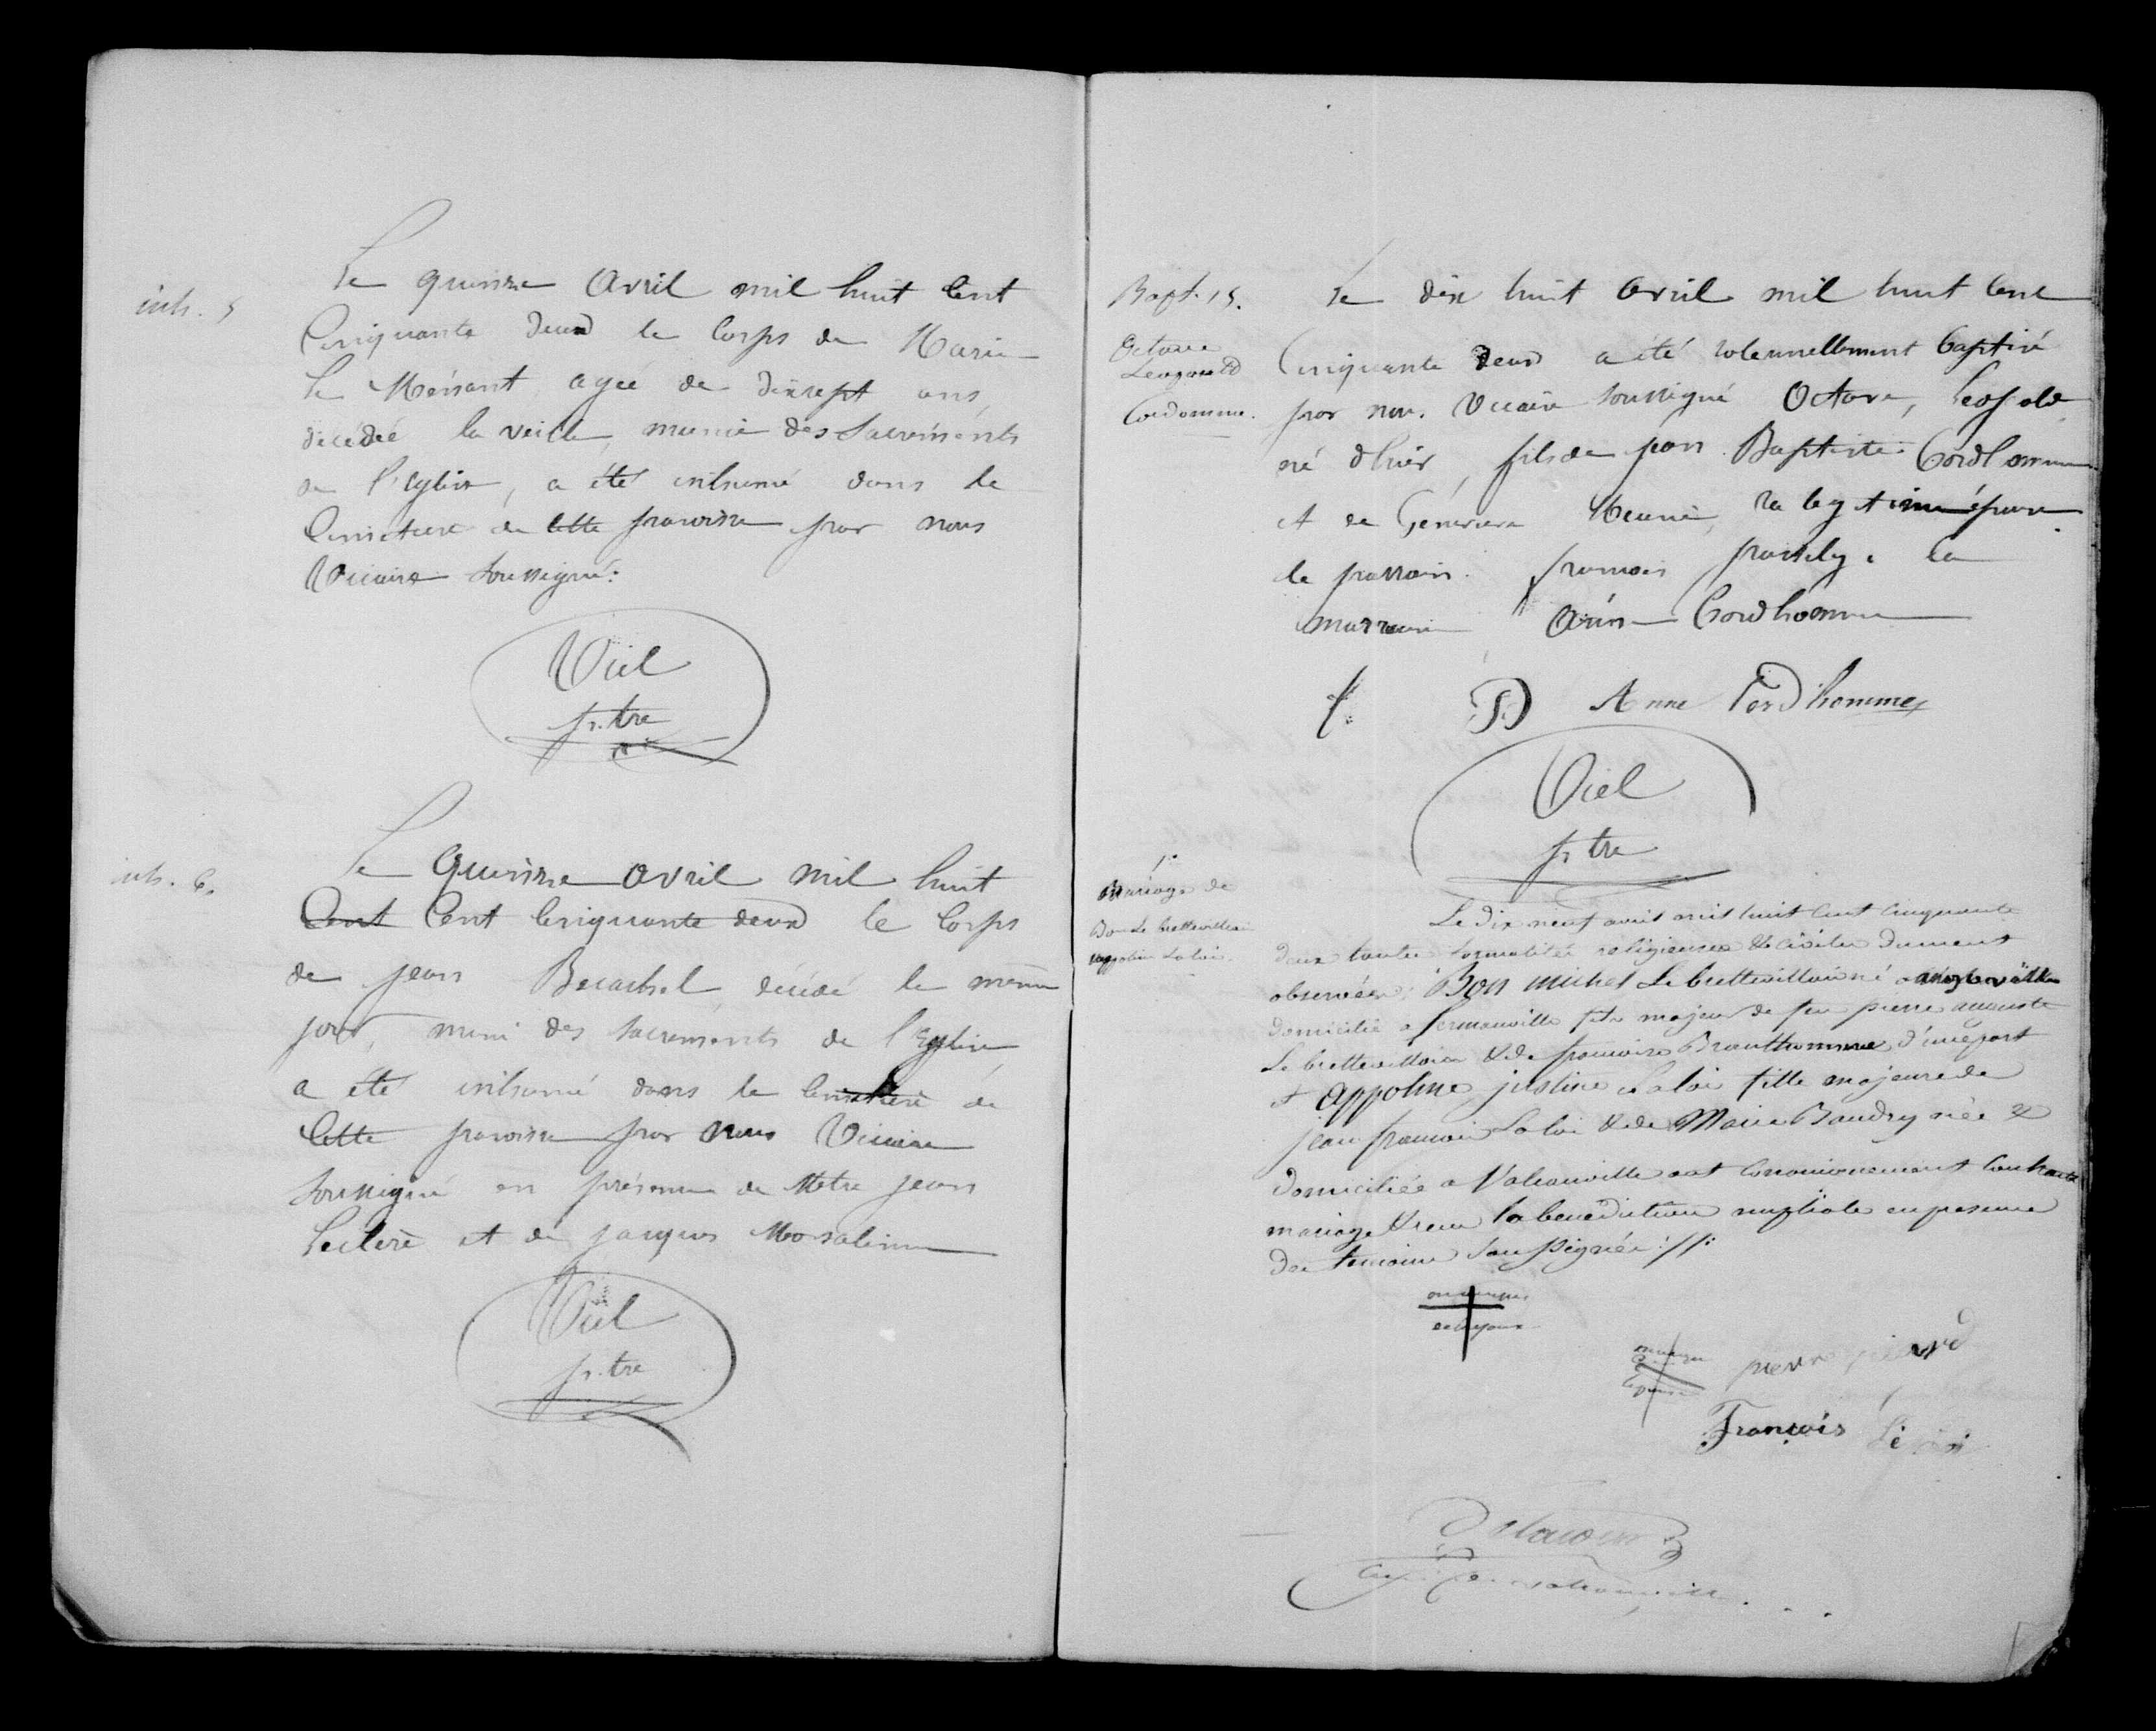 inh. 5
Le quinze Avril mil huit Cent
Cinquante deux le Corps de Marie
le Menant agée de dixsept ans,
décédée la veille, munie des Sacréments
de l'Eglise, a été inhumé dans le
Cimetiere de Cette paroisse par nous
Vicaire Soussigné:
Viel
p.tre
inh. 6.
Le quinze avril mil huit
Cent Cent Cinquante deux le Corps
de jean décédé le même
jour, muni des sacrements de l'Eglise
a été inhumé dans le Cimetière de
Cette paroisse par nous Vicaire
Soussigné en présence de Mêtre jean
Leclerc et de jacques
Viel
p.tre
Bapt. 15.
Octave
Leopold
Cordomme.
Le dix huit Avril mil huit Cent
Cinquante deux a été solennellement baptisé
par nous Vicaire soussigné Octave, Leopold
né d'hier, fils de jean Baptiste Cordhomme
et de Génévieve la legitime épouse.
le parrain françois la
marraine Cordhomme
Anne Cordhomme
Viel
ptre
1.º
Mariage de
Bon Le brettevillois
appoline Laloi.
Le dix neuf avril mil huit cent cinquante
deux toutes formalités religieuses & civiles dument
observées, Bon michel Le brettevillois né a
domicilié a fermanville fils majeur de feu pierre auguste
Le brettevillois & de françoise d'une part
et appoline justine Laloi fille majeure de
jean francois Laloi & de Marie Baudry née &
domiciliée a Valcanville ont contracté
mariage & recu la bénédiction nuptiale en presence
des temoins soussignés ://:
pierre
François
Delacour